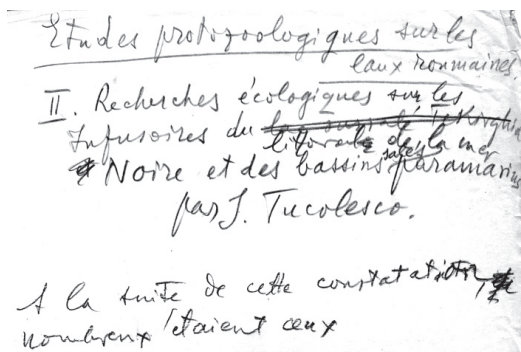 Etudes protozoologiques sur les
eaux roumaines.
II. Recherches écologiques sur les
Infusoires du
litorale de la mer
Noire et des bassins salés paramarins
par J. Tucolesco.
A la suite de cette constatation,
nombreux étaient ceux